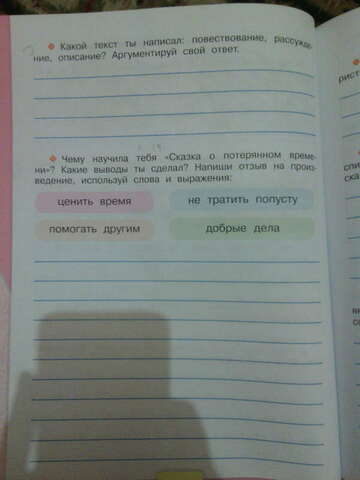 Какой текст ты написал: повествование, рассужде-
ние, описание? Аргументируй свой ответ.
Чему научила тебя «Сказка о потерянном време-
ни»? Какие выводы ты сделал? Напиши отзыв на произ-
ведение, используй слова и выражения:
ценить время
не тратить попусту
помогать другим
добрые дела
рист
спи
ска